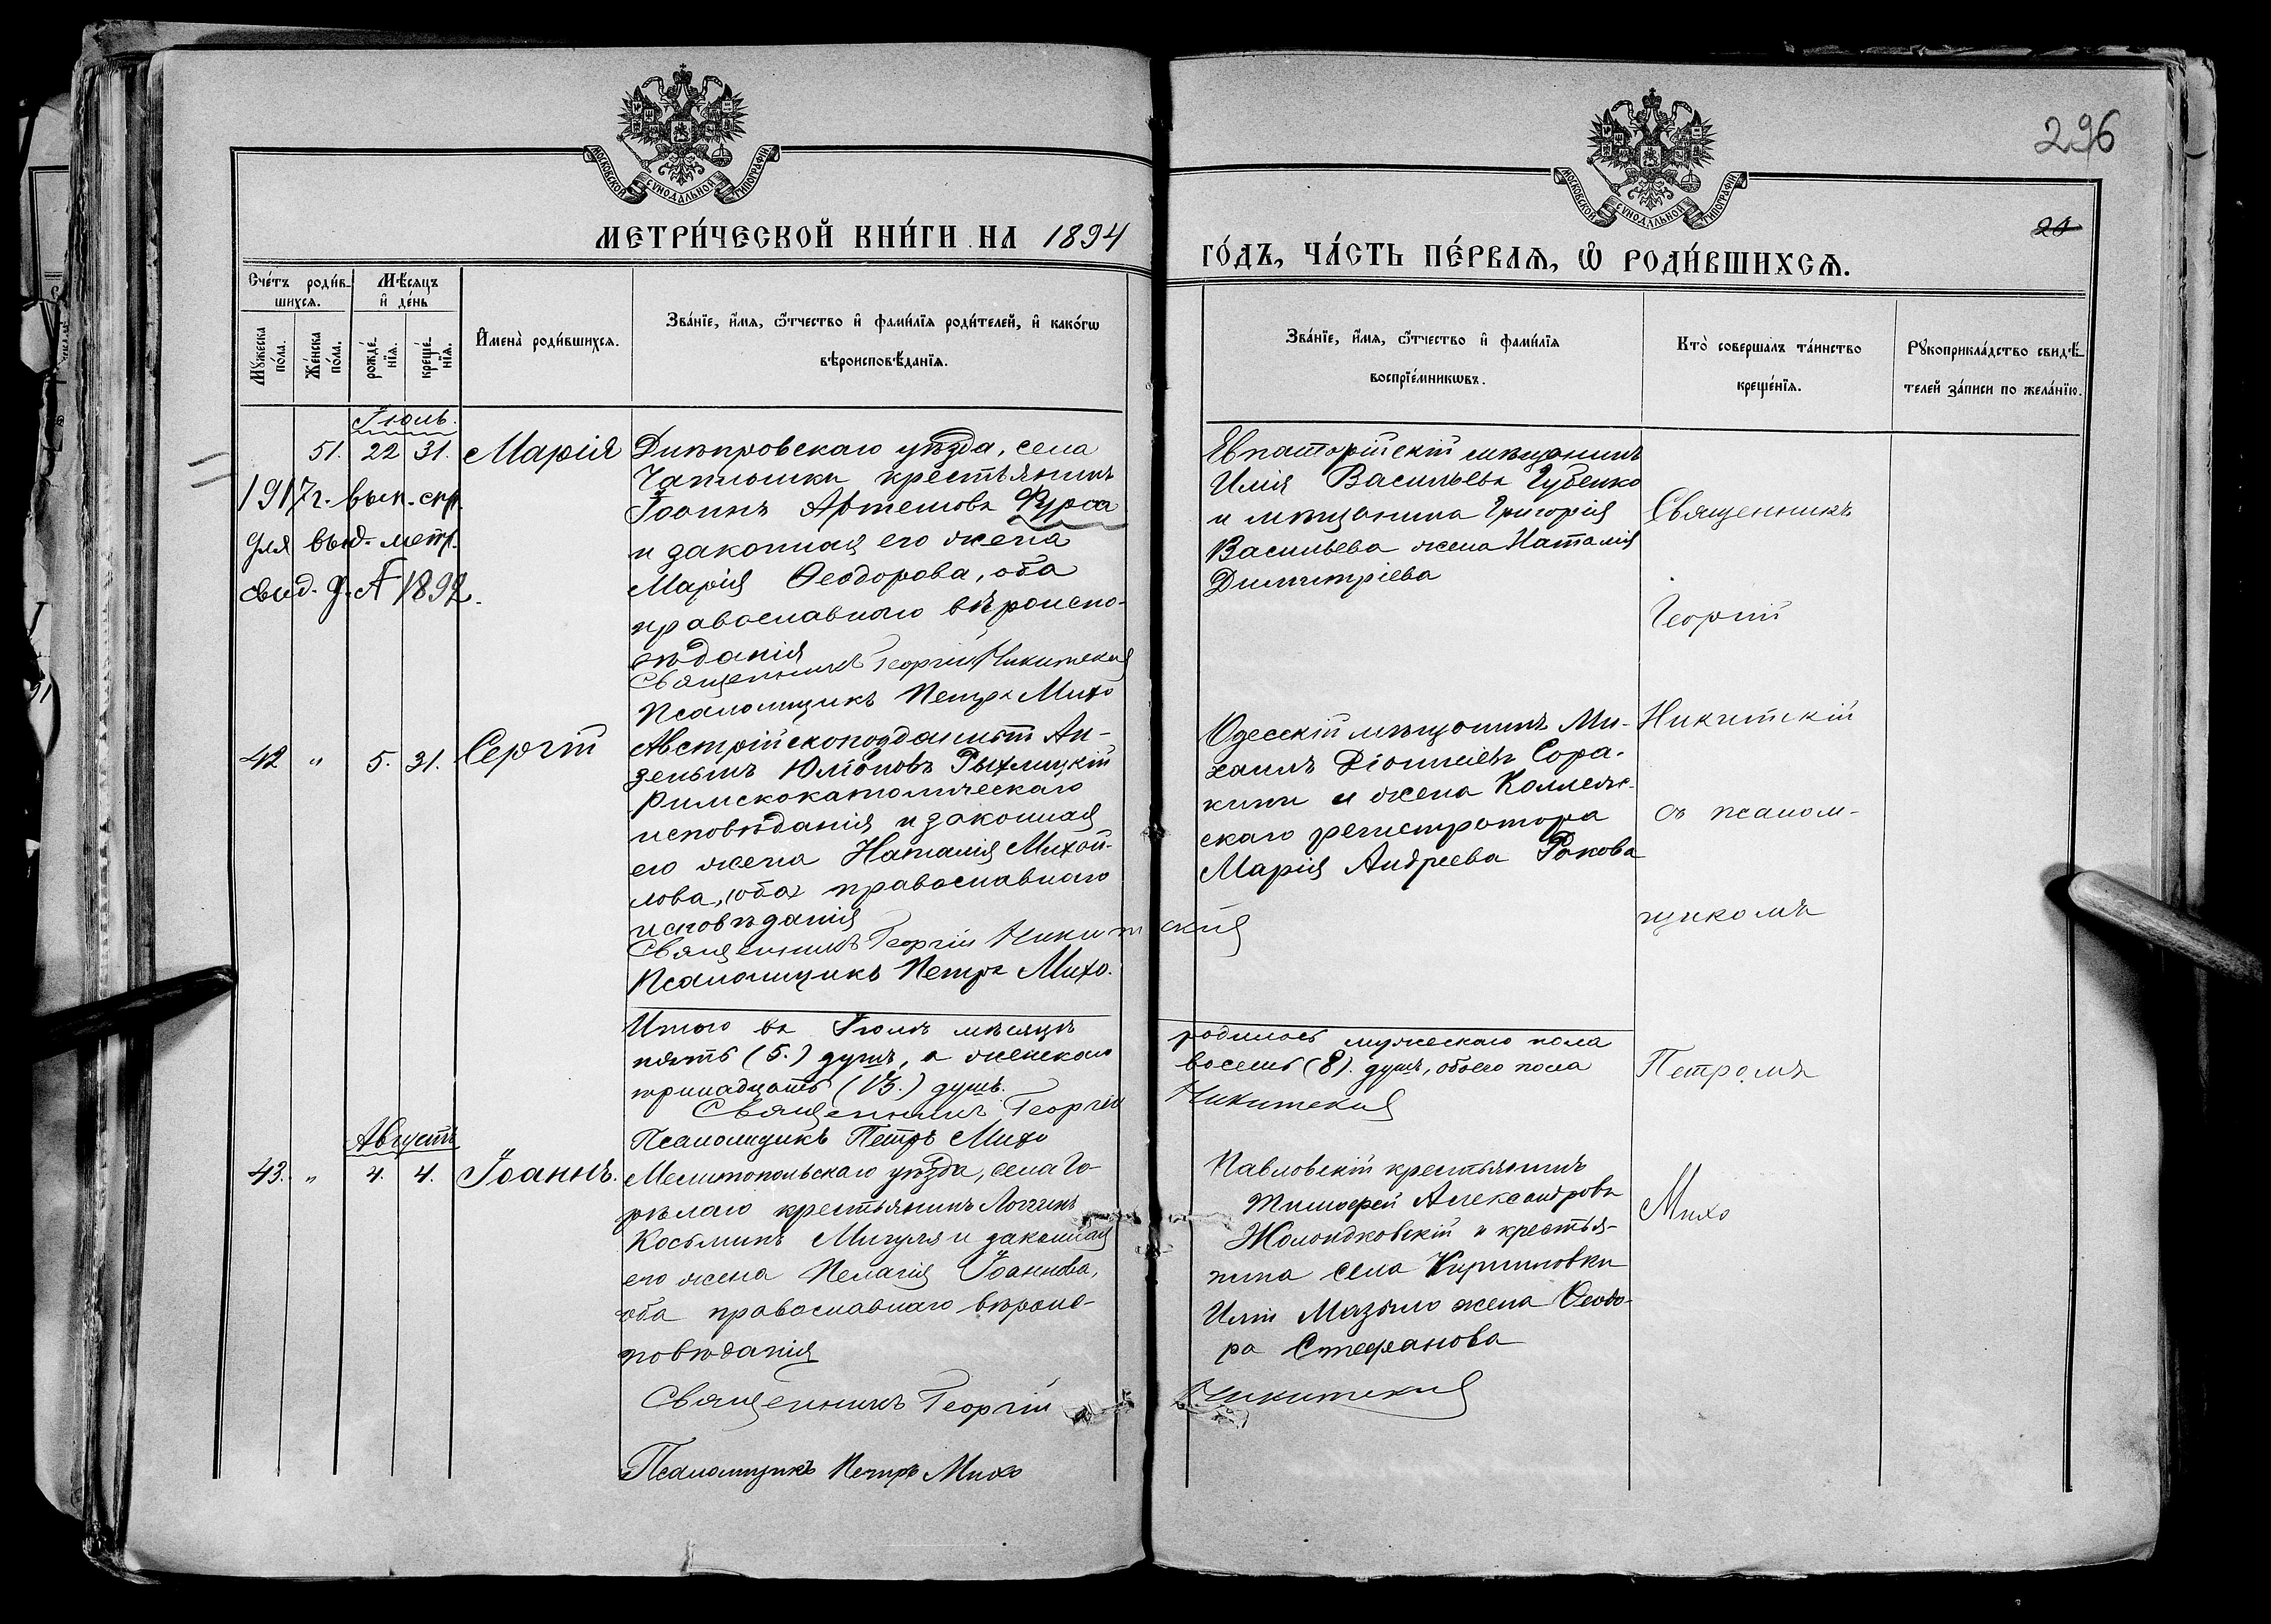 296
МОСКОВСКОЙ СУНОДАЛЬНОЙ ТИПОГРАФІИ
МОСКОВСКОЙ СУНОДАЛЬНОЙ ТИПОГРАФІИ
МЕТРИ́ЧЕСКОЙ КНИ́ГИ НА 1894
ГО́ДЪ, ЧА́СТЬ ПЕ́РВАѦ, Ѡ РОДИ́ВШИХСѦ.
Сче́тъ роди́в-
шихсѧ.
Мѣ́сѧцъ
и҆ де́нь
Мꙋ́жеска
по́ла.
Же́нска
по́ла.
рожде́-
нїѧ.
креще́-
нїѧ.
И҆мена̀ роди́вшихсѧ.
Зва́нїе, и҆́мѧ, ѻ҆́тчество и҆ фами́лїѧ роди́телей, и҆ како́гѡ
вѣроисповѣ́данїѧ.
Зва́нїе, и҆́мѧ, ѻ҆́тчество и҆ фами́лїѧ
воспрїе́мникѡвъ.
Кто̀ соверша́лъ та́инство
креще́нїѧ.
Рꙋкоприкла́дство свидѣ́-
телей за́писи по жела́нїю.
Іюль.
51. 22 31. Марія
1917 г. вып. спр.
для выд. метр.
свид.
1892.
Днѣпровскаго уѣзда, села
Чаплынки крестьянинъ
Іоаннъ Артемовъ Фурса
и законная его жена
Марія Ѳеодорова, оба
православнаго вѣроиспо-
вѣданія
Священникъ Георгій Никитскій
Псаломщикъ Петръ Михо
Евпаторійскій мѣщанинъ
Илія Васильевъ Губенко
и мѣщанина Григорія
Васильева жена Наталія
Димитріева
Священникъ
Георгій
Никитскій
съ псалом-
щикомъ
Петромъ
Михо
42 " 5. 31. Сергій
Австрійскоподданный Ан-
зельмъ Юліановъ Рыхлицкій
Римскокатолическаго
исповѣданія и законная
его жена Наталія Михай-
лова, оба православнаго
исповѣданія
Священникъ Георгій Никитскій
Псаломщикъ Петръ Михо.
Одесскій мѣщанинъ Ми-
хаилъ Діонисіевъ Сора-
кини и жена Коллеж-
скаго регистратора
Марія Андреева Ракова
Итого въ Іюлѣ мѣсяцѣ родилось мужескаго пола
пять (5.) душъ, а женскаго восемь (8). душъ, обоего пола
тринадцать (13.) душъ.
Священникъ Георгій Никитскій
Псаломщикъ Петръ Михо
Августъ
43. " 4. 4. Іоаннъ.
Мелитопольскаго уѣзда, села Го-
рѣлаго крестьянинъ Логгинъ
Косьминъ Мигуля и законная
его жена Пелагія Іоаннова,
оба православнаго вѣроис-
повѣданія
Священникъ Георгій Никитскій
Псаломщикъ Петръ Михо
Павловскій крестьянинъ
Тимофей Александровъ
Жолондковскій и крестья-
нина села Кирилловки
Иліи Мазыло жена Ѳеодо-
ра Стефанова